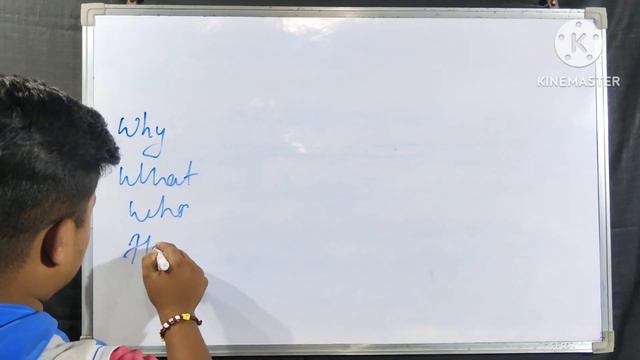 Why
What
Who
H
KINEMASTER